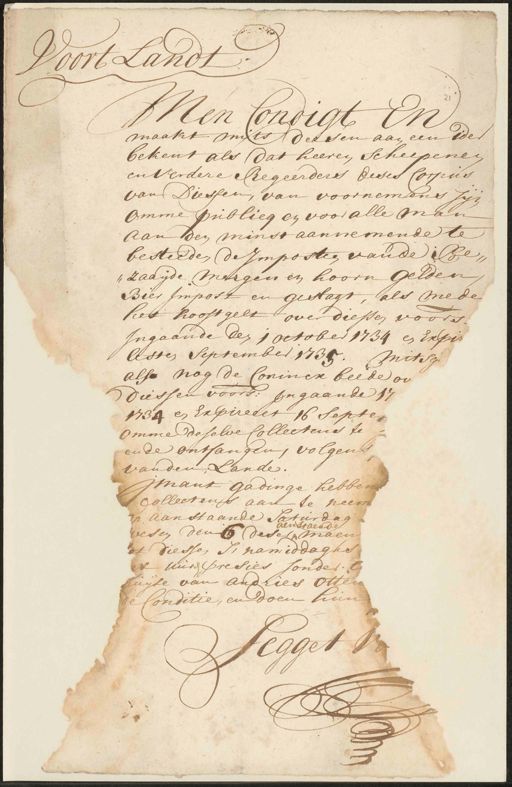 Voort Landt.
Men Condigt En
maakt mits desen aan een Ider
bekent als dat heeren Scheepenen
en verdere Regeerders deses Corpus
van Diessen, van voornemens sijn
omme publieq en voor alle man
aan den minst aannemende te
besteden de Imposten van de Be„
„zaayde Margen en hoorn gelden,
Bier Impost en geslagt, als mede
het hooftgelt over diessen voors.
Ingaande den 1 October 1734 en Expi
lesten September 1735. Mits
als nog de Coninx beede ov
Diessen voors: Ingaande 17
1734 en Expireert 16 Septe
omme deselve Collecteurs te
ende ontfangen, volgen
van den Lande.
Imant gadinge hebben
collecteurs aan te neem
aanstaande Saturdag
den 6 deser aenstaende maen
diessen S: namiddaghs
uur presies sonder
van andries Otte
Conditie, en doen hun
Segget